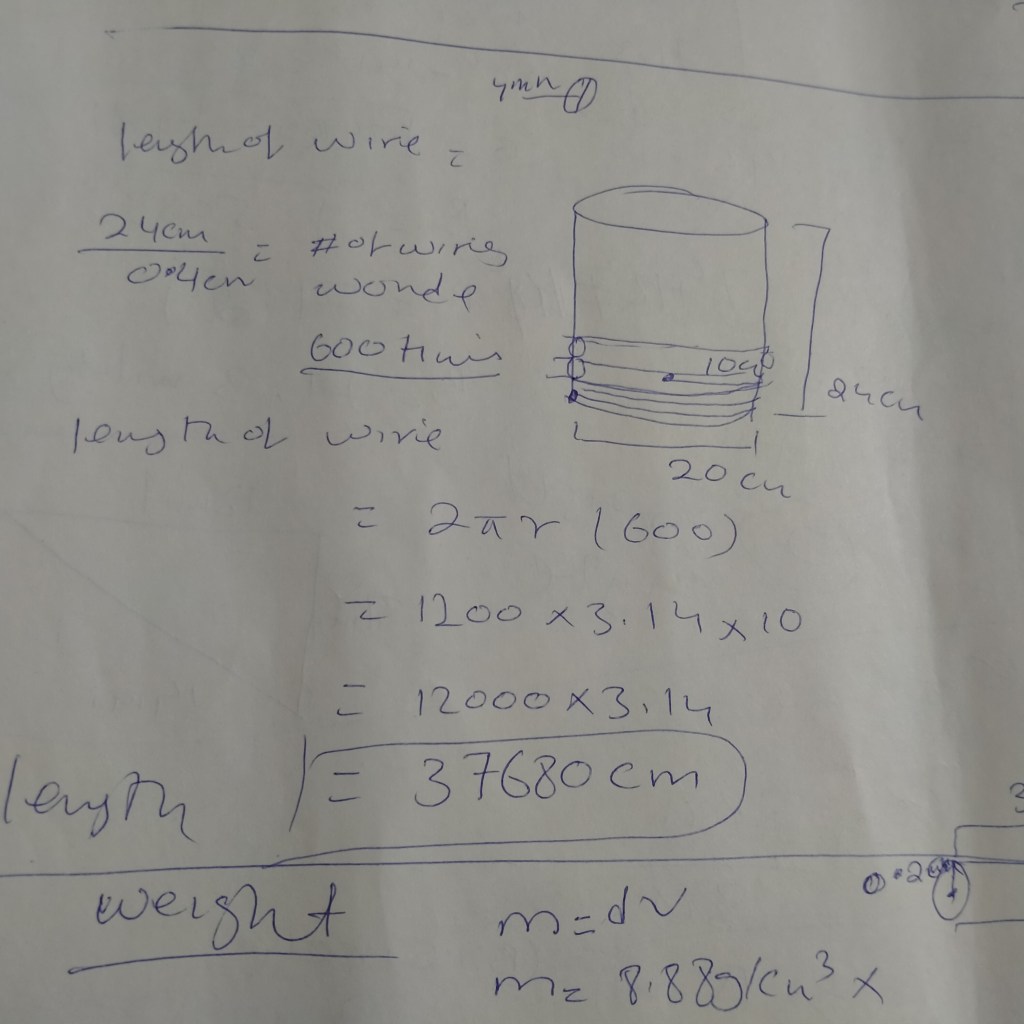 4mm
length of wire =
24cm / 0.4cm = # of wires
wonde
600 times
10cm
24cm
20cm
length of wire
= 2πr (600)
= 1200 x 3.14 x 10
= 12000 x 3.14
length = 37680 cm
0.2cm
3
weight
m = dv
m = 8.88g/cm³ x